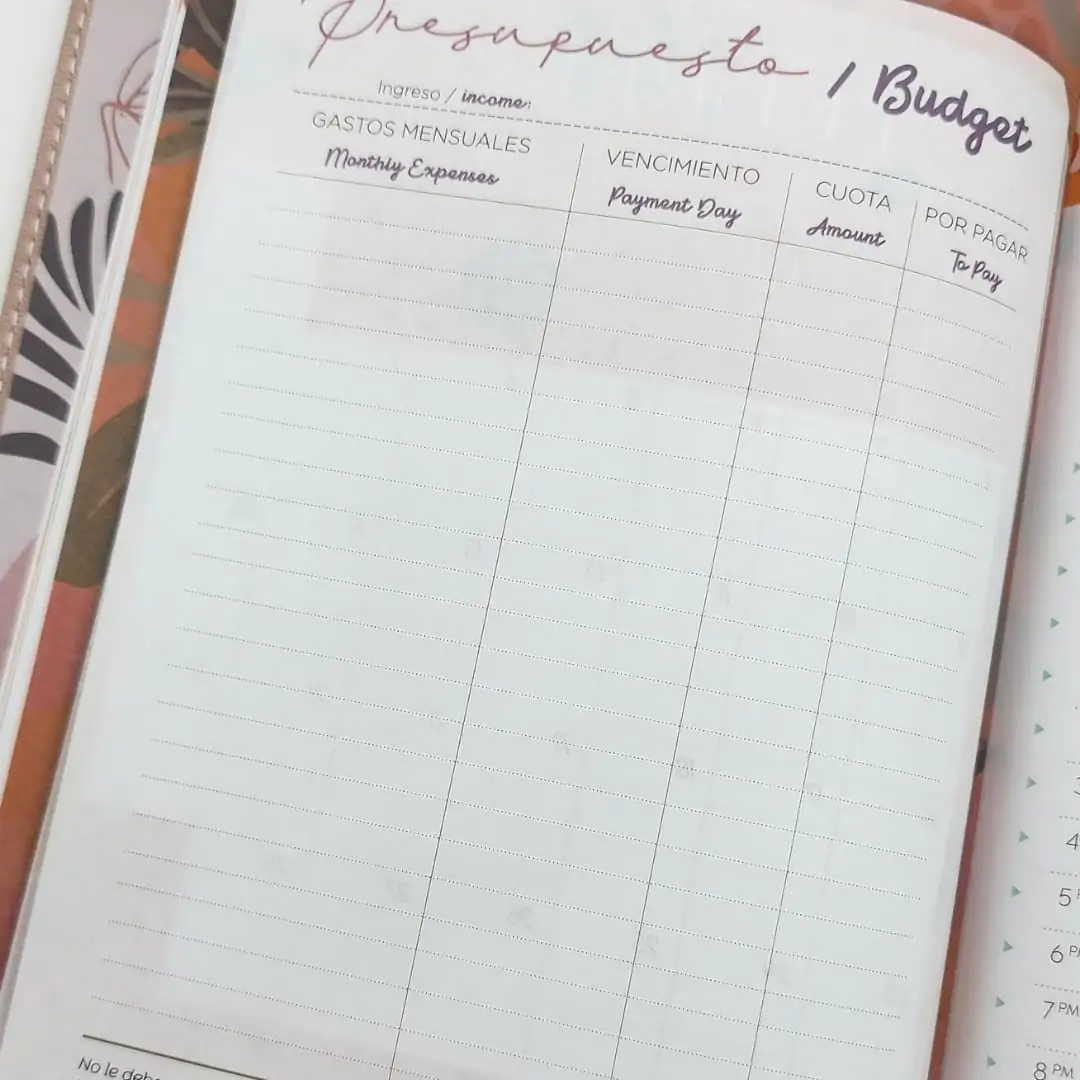 Presupuesto / Budget
Ingreso / income:
GASTOS MENSUALES
Monthly Expenses
VENCIMIENTO
Payment Day
CUOTA
Amount
POR PAGAR
To Pay
No le
4
5
6 PM
7 PM
8 PM